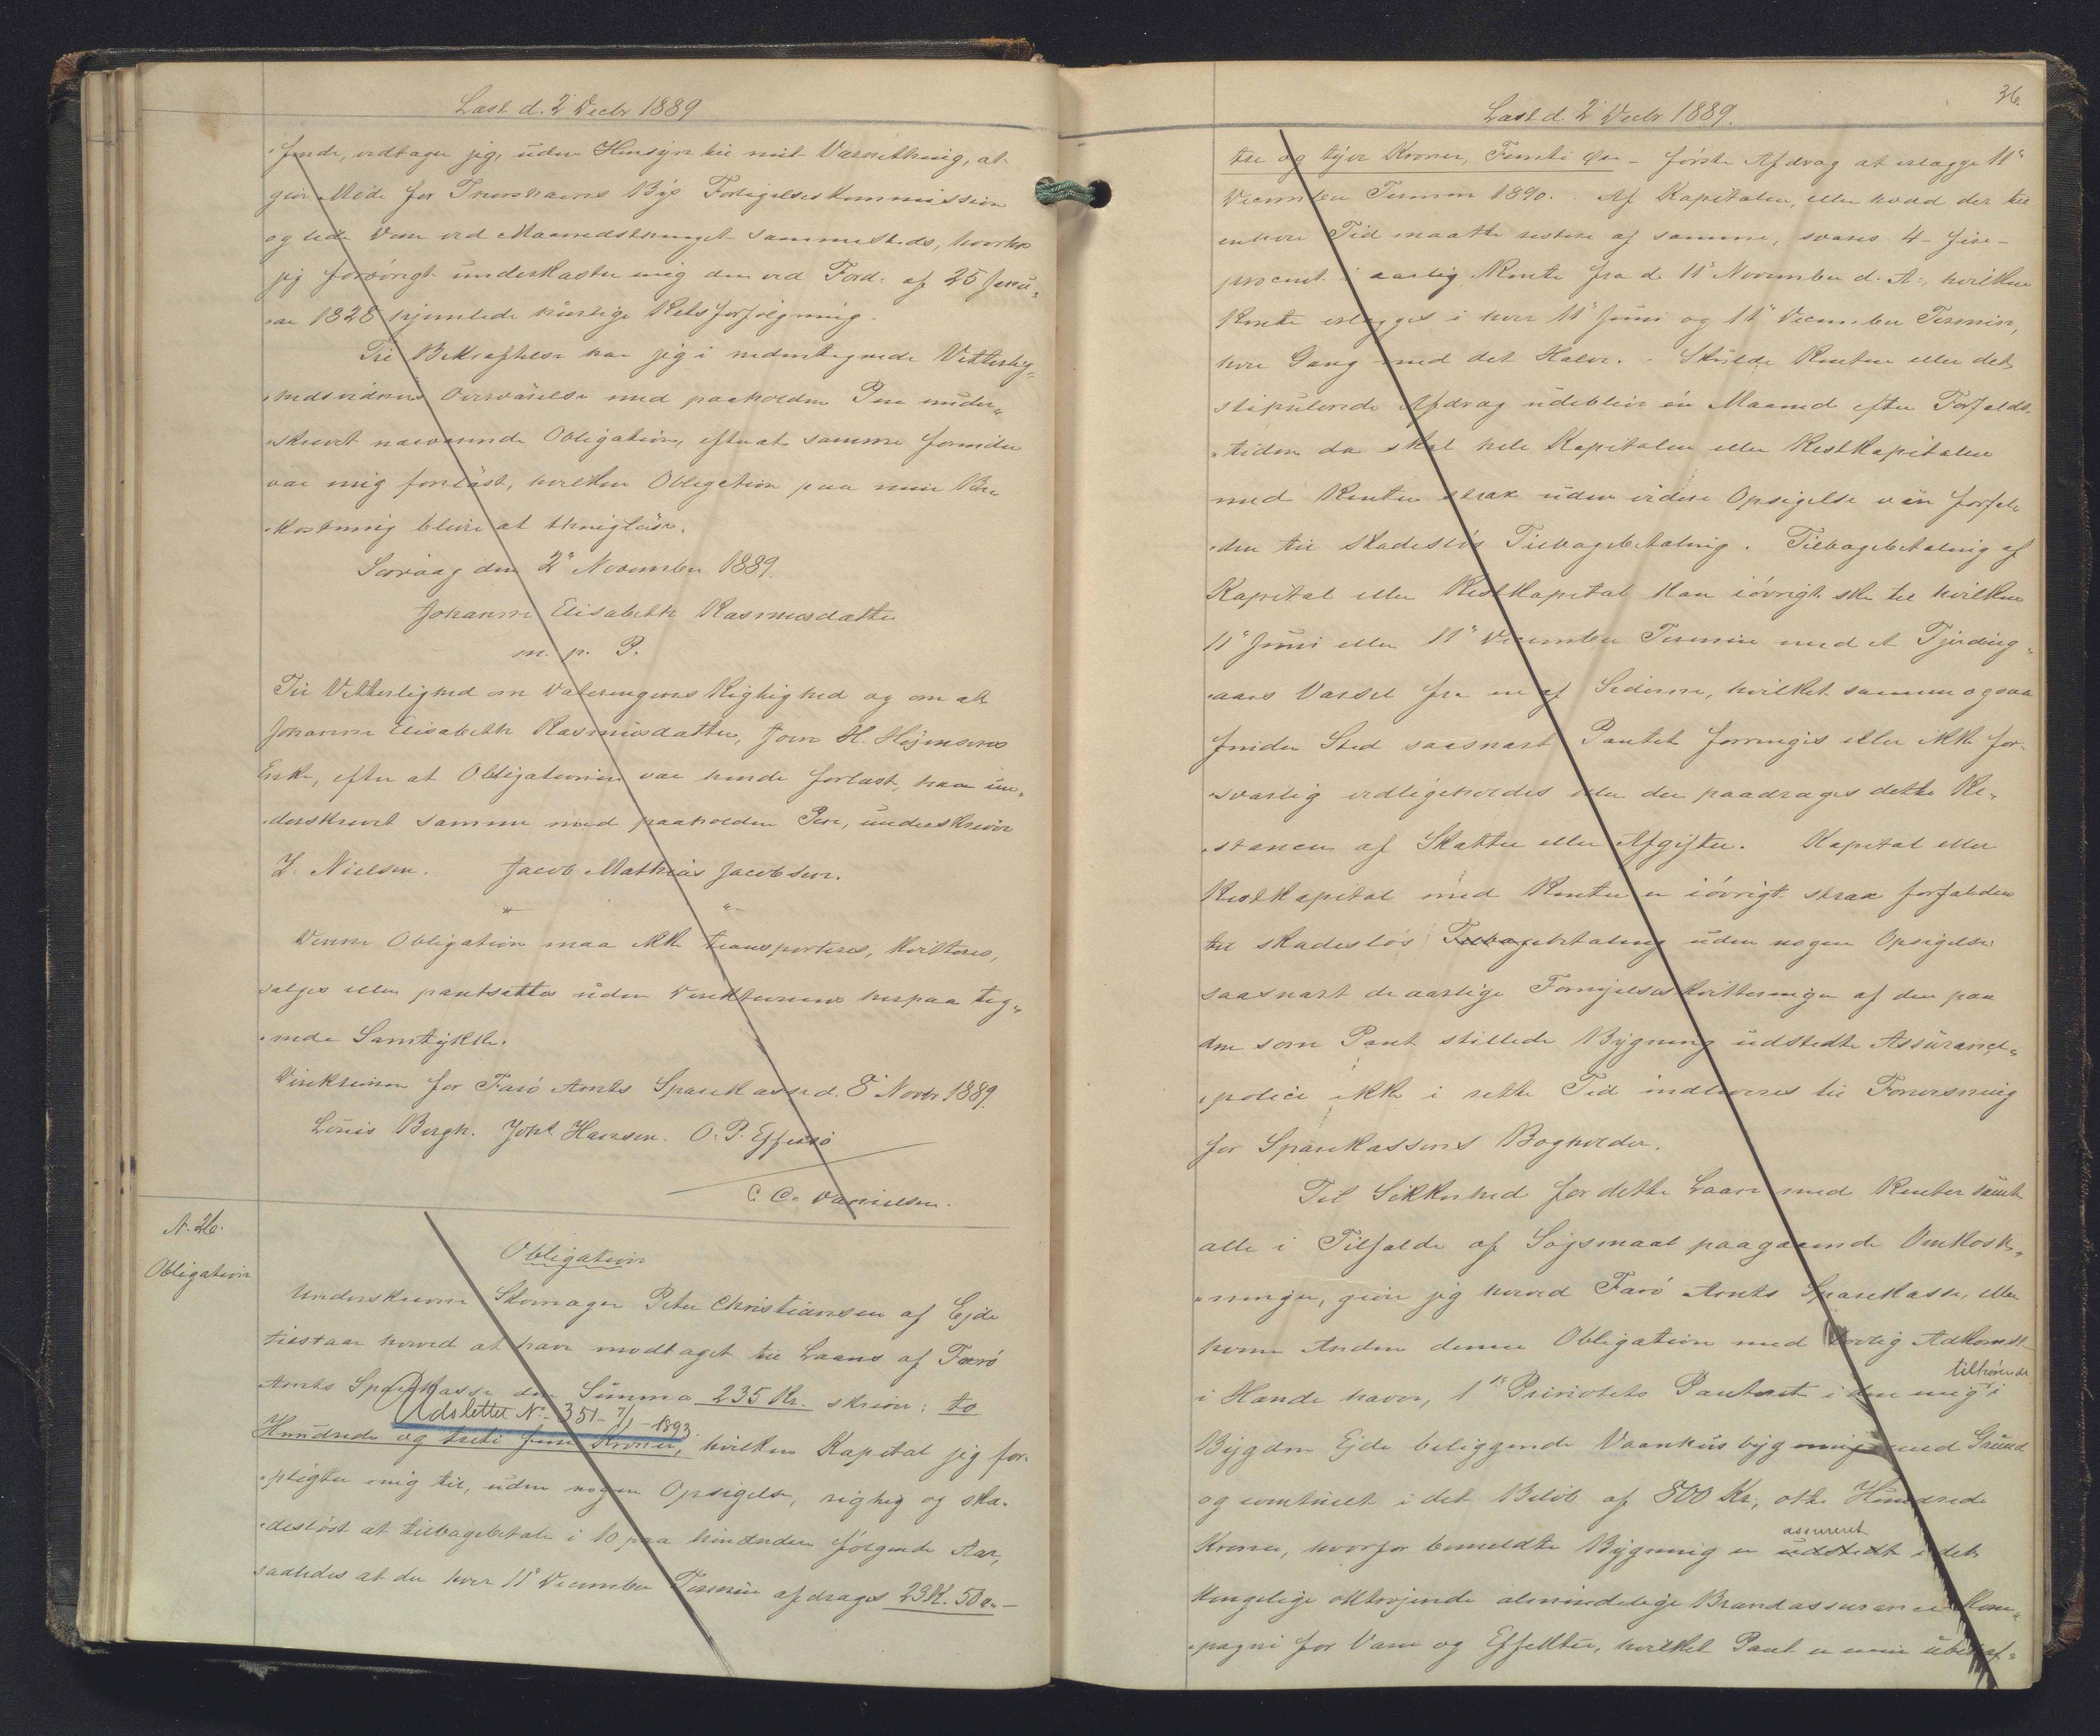 Læst d. 2 Decbr 1889
finde, vedtager jeg, uden Hensyn til mit Værnething, at
give Møde for Thorshavns Bys Forligelseskommission
og lide Dom ved Maanedsthinget sammesteds, hvorhos
jeg forøvrigt underkaster mig den ved Ford: af 25 Janu„
„ar 1828 hjemlede hurtige Retsforfølgning.
Til Bekræftelse har jeg i nedentegnede Vitterlig„
„hedsvidners Overværelse med paaholden Pen under„
„skrevet nærværende Obligation, efterat samme forinden
var mig forelæst, hvilken Obligation paa min Be„
„kostning bliver at thinglæse.
Sørvaag den 2 November 1889.
Johanne Elisabeth Rasmusdatter
m. p. P.
Til Vitterlighed om Dateringens Rigtighed og om at
Johanne Elisabeth Rasmusdatter, Joen H. Hejnesens
Enke, efter at Obligationen var hende forelæst, har un„
„derskrevet samme med paaholden Pen, underskriver
Z. Nielsen. Jacob Mathias Jacobsen.
Denne Obligation maa ikke transporteres, kvitteres,
sælges eller pantsættes uden Direktionens herpaa teg„
„nede Samtykke.
Direktionen for Færø Amts Sparekasse d. 8 Novbr 1889.
Louis Bergh. Johs Hansen. O. P. Effersø
C. C. Danielsen.
N. 26.
Obligation
Obligation
Underskrevne Skomager Peter Christiansen af Ejde
tilstaar herved at have modtaget til Laans af Færø
Amts Sparekasse den Summa 235 Kr. skriver: to
Udslettet No 351 - 7/1 - 1893
Hundrede og treti fem Kroner, hvilken Kapital jeg for„
„pligter mig til, uden nogen Opsigelse, rigtig og ska„
„desløst at tilbagebetale i 10 paa hinanden følgende Aar,
saaledes at der hver 11 December Termin afdrages 23 K. 50 ø. –
36.
Læst d. 2 Decbr 1889.
tre og tyve Kroner, Femti Øre – første Afdrag at erlægge 11
December Termin 1890. Af Kapitalen, eller hvad der til
enhver Tid maatte restere af samme, svares 4 – fire –
procent i aarlig Rente fra d. 11 November d. A:, hvilken
Rente erlægges i hver 11 Juni og 11 December Termin,
hver Gang med det Halve. – Skulde Renten eller det
stipulerede Afdrag udeblive én Maaned efter Forfalds„
„tiden da skal hele Kapitalen eller Restkapitalen
med Renter strax uden videre Opsigelse være forfal„
„den til skadesløs Tilbagebetaling. Tilbagebetaling af
Kapital eller Restkapital kan iøvrigt ske til hvilken
11 Juni eller 11 December Termin med et Fjerding„
„aars Varsel fra en af Siderne, hvilket samme ogsaa
finder Sted saasnart Pantet forringes eller ikke for„
„svarlig vedligeholdes eller der paadrages dette Re„
„stancer af Skatter eller Afgifter. Kapital eller
Restkapital med Renter er iøvrigt strax forfalden
til skadesløs Tilbagebetaling uden nogen Opsigelse
saasnart de aarlige Fornyelseskvitteringer af den paa
den som Pant stillede Bygning udstedte Assurance„
„police ikke i rette Tid indleveres til Forevisning
for Sparekassens Bogholder.
Til Sikkerhed for dette Laan med Renter samt
alle i Tilfælde af Søgsmaal paagaaende Omkost„
„ninger, giver jeg herved Færø Amts Sparekasse, eller
hvem Anden denne Obligation med lovlig Adkomst
i Hænde haver, 1ste Prioritets Panteret i den mig tilhørende i
Bygden Ejde beliggende Vaanhusbygning med Grund
og eventuelt i det Beløb af 800 Kr, otte Hundrede
Kroner, hvorfor bemeldte Bygning er udstedt assureret i det
kongelige oktrojerede almindelige Brandassurance Kom„
„pagni for Varer og Effekter, hvilket Pant er min ubehæf„